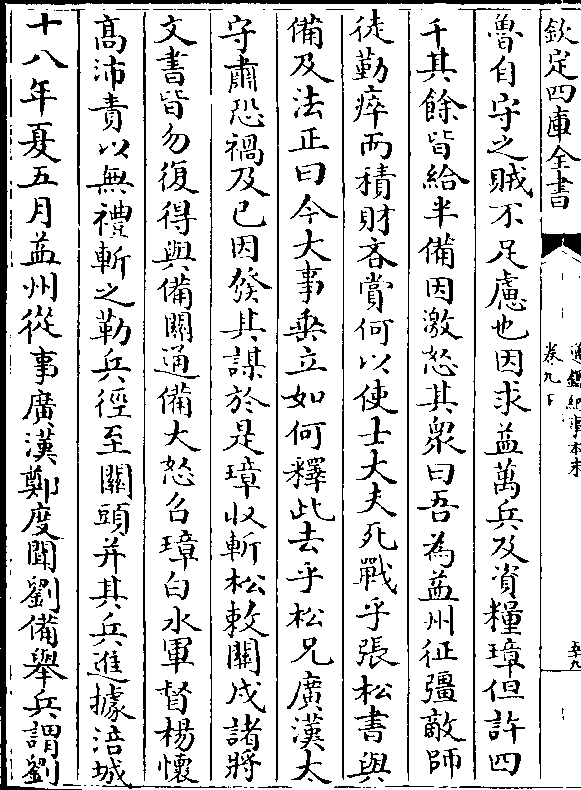 欽定四庫全書
通鑑紀事本末
卷九下
魯自守之賊不足慮也因求益萬兵及資糧璋但許四
千其餘皆給半備因激怒其衆曰吾為益州征彊敵師
徒勤瘁而積財吝賞何以使士大夫死戰乎張松書與
備及法正曰今大事垂立如何釋此去乎松兄廣漢太
守肅恐禍及已因發其謀於是璋収斬松敕關戍諸將
文書皆勿復得與備關通備大怒召璋白水軍督楊懷
髙沛責以無禮斬之勒兵徑至關頭并其兵進據涪城
十八年夏五月益州從事廣漢鄭度聞劉備舉兵謂劉